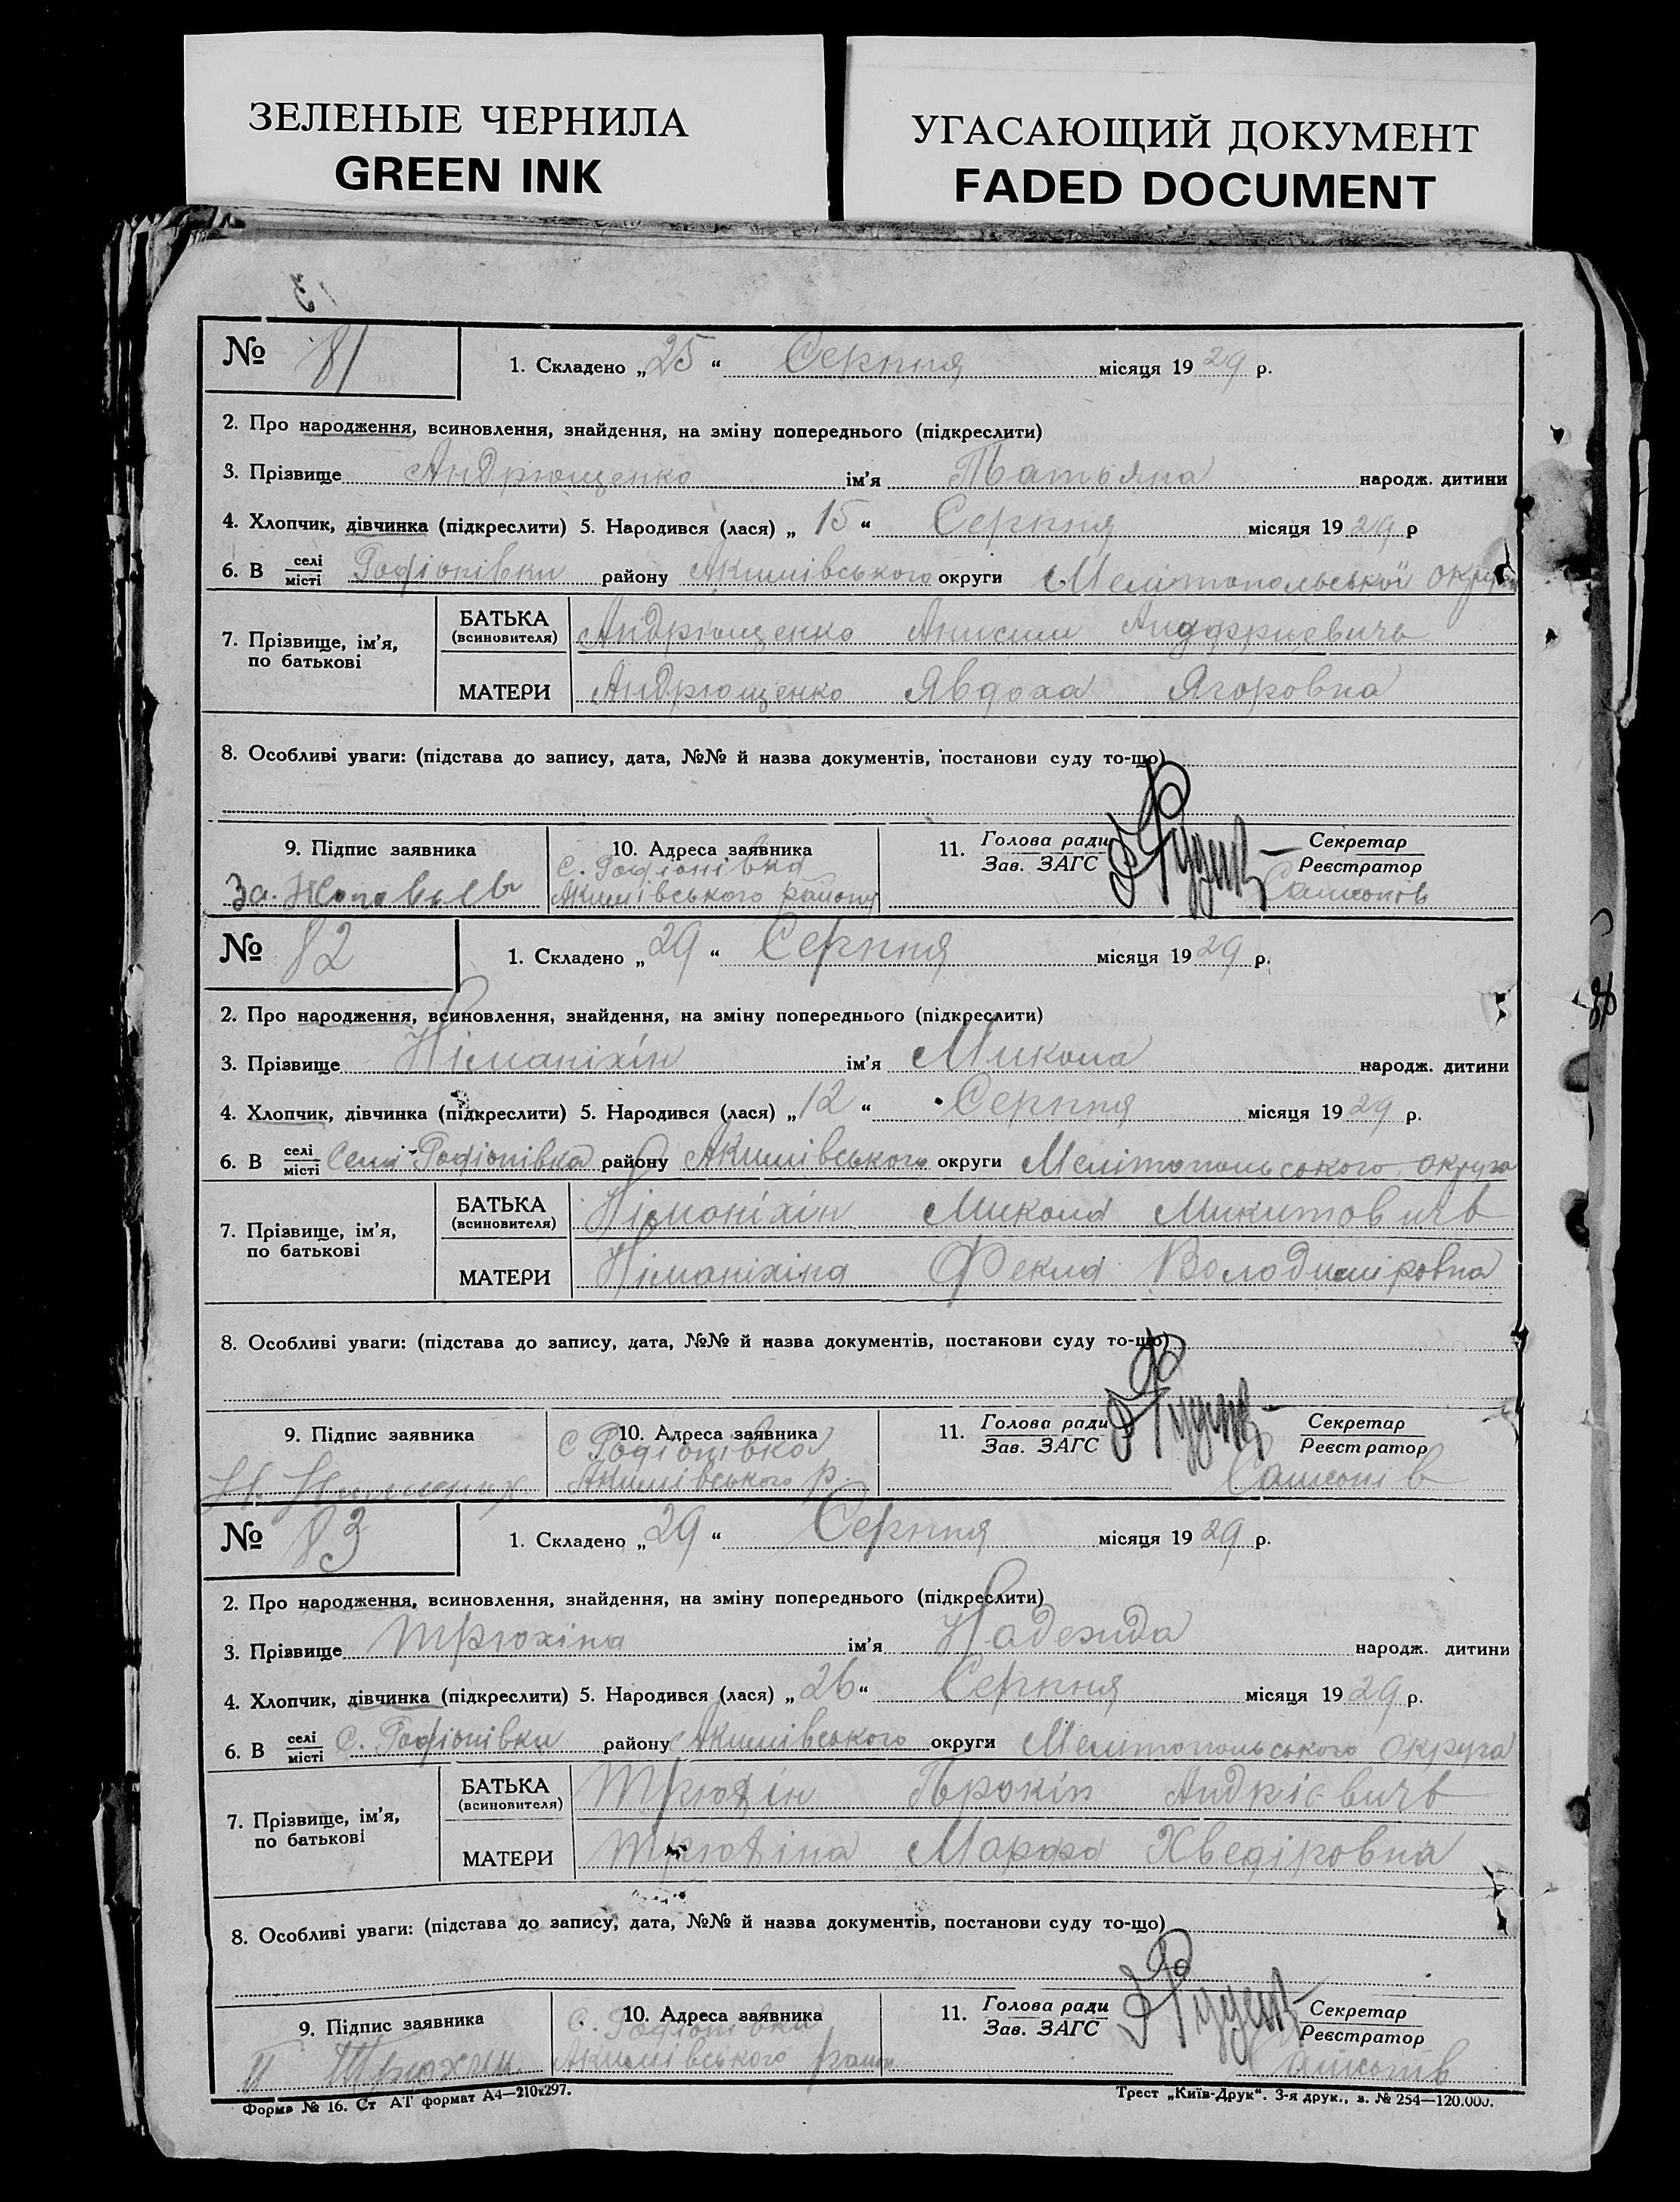 ЗЕЛЕНЫЕ ЧЕРНИЛА
GREEN INK
УГАСАЮЩИЙ ДОКУМЕНТ
FADED DOCUMENT
№ 81
1. Складено „25“ Серпня місяця 1929 р.
2. Про народження, всиновлення, знайдення, на зміну попереднього (підкреслити)
3. Прізвище Андрющенко ім'я Татьяна народж. дитини
4. Хлопчик, дівчинка (підкреслити) 5. Народився (лася) „15“ Серпня місяця 1929 р
6. В селі місті Родіонівки району Акимівського округи Мелітопольської округи
7. Прізвище, ім'я, по батькові
БАТЬКА (всиновителя) Андрющенко Анисим
МАТЕРИ Андрющенко Явдоха Ягоровна
8. Особливі уваги: (підстава до запису, дата, №№ й назва документів, постанови суду то-що)
9. Підпис заявника
За.
10. Адреса заявника
с. Родіонівка
Акимівського району
11. Голова ради Зав. ЗАГС
Секретар Реєстратор
Самсонів
№ 82
1. Складено „29“ Серпня місяця 1929 р.
2. Про народження, всиновлення, знайдення, на зміну попереднього (підкреслити)
3. Прізвище Німаніхін ім'я Микола народж. дитини
4. Хлопчик, дівчинка (підкреслити) 5. Народився (лася) „12“ Серпня місяця 1929 р.
6. В селі місті Селі Родіонівка району Акимівського округи Мелітопольського округа
7. Прізвище, ім'я, по батькові
БАТЬКА (всиновителя) Німоніхін Микола Микитовичь
МАТЕРИ Німаніхіна Фекла Володиміровна
8. Особливі уваги: (підстава до запису, дата, №№ й назва документів, постанови суду то-що)
9. Підпис заявника
10. Адреса заявника
с Родіонівка
Акимівського р.
11. Голова ради Зав. ЗАГС
Секретар Реєстратор
Самсонів
№ 83
1. Складено „29“ Серпня місяця 1929 р.
2. Про народження, всиновлення, знайдення, на зміну попереднього (підкреслити)
3. Прізвище Трюхіна ім'я Надежда народж. дитини
4. Хлопчик, дівчинка (підкреслити) 5. Народився (лася) „26“ Серпня місяця 1929 р.
6. В селі місті С. Родіонівки району Акимівського округи Мелітопольського округа
7. Прізвище, ім'я, по батькові
БАТЬКА (всиновителя) Трюхін Прокіп Андрієвичь
МАТЕРИ Трюхіна Марфа Хведіровна
8. Особливі уваги: (підстава до запису, дата, №№ й назва документів, постанови суду то-що)
9. Підпис заявника
П Трюхин
10. Адреса заявника
С. Родіонівки
Акимівського район
11. Голова ради Зав. ЗАГС
Секретар Реєстратор
Самсонів
Форма № 16. Ст АТ формат А4—210х297.
Трест „Київ-Друк“. 3-я друк., з. № 254—120.000.